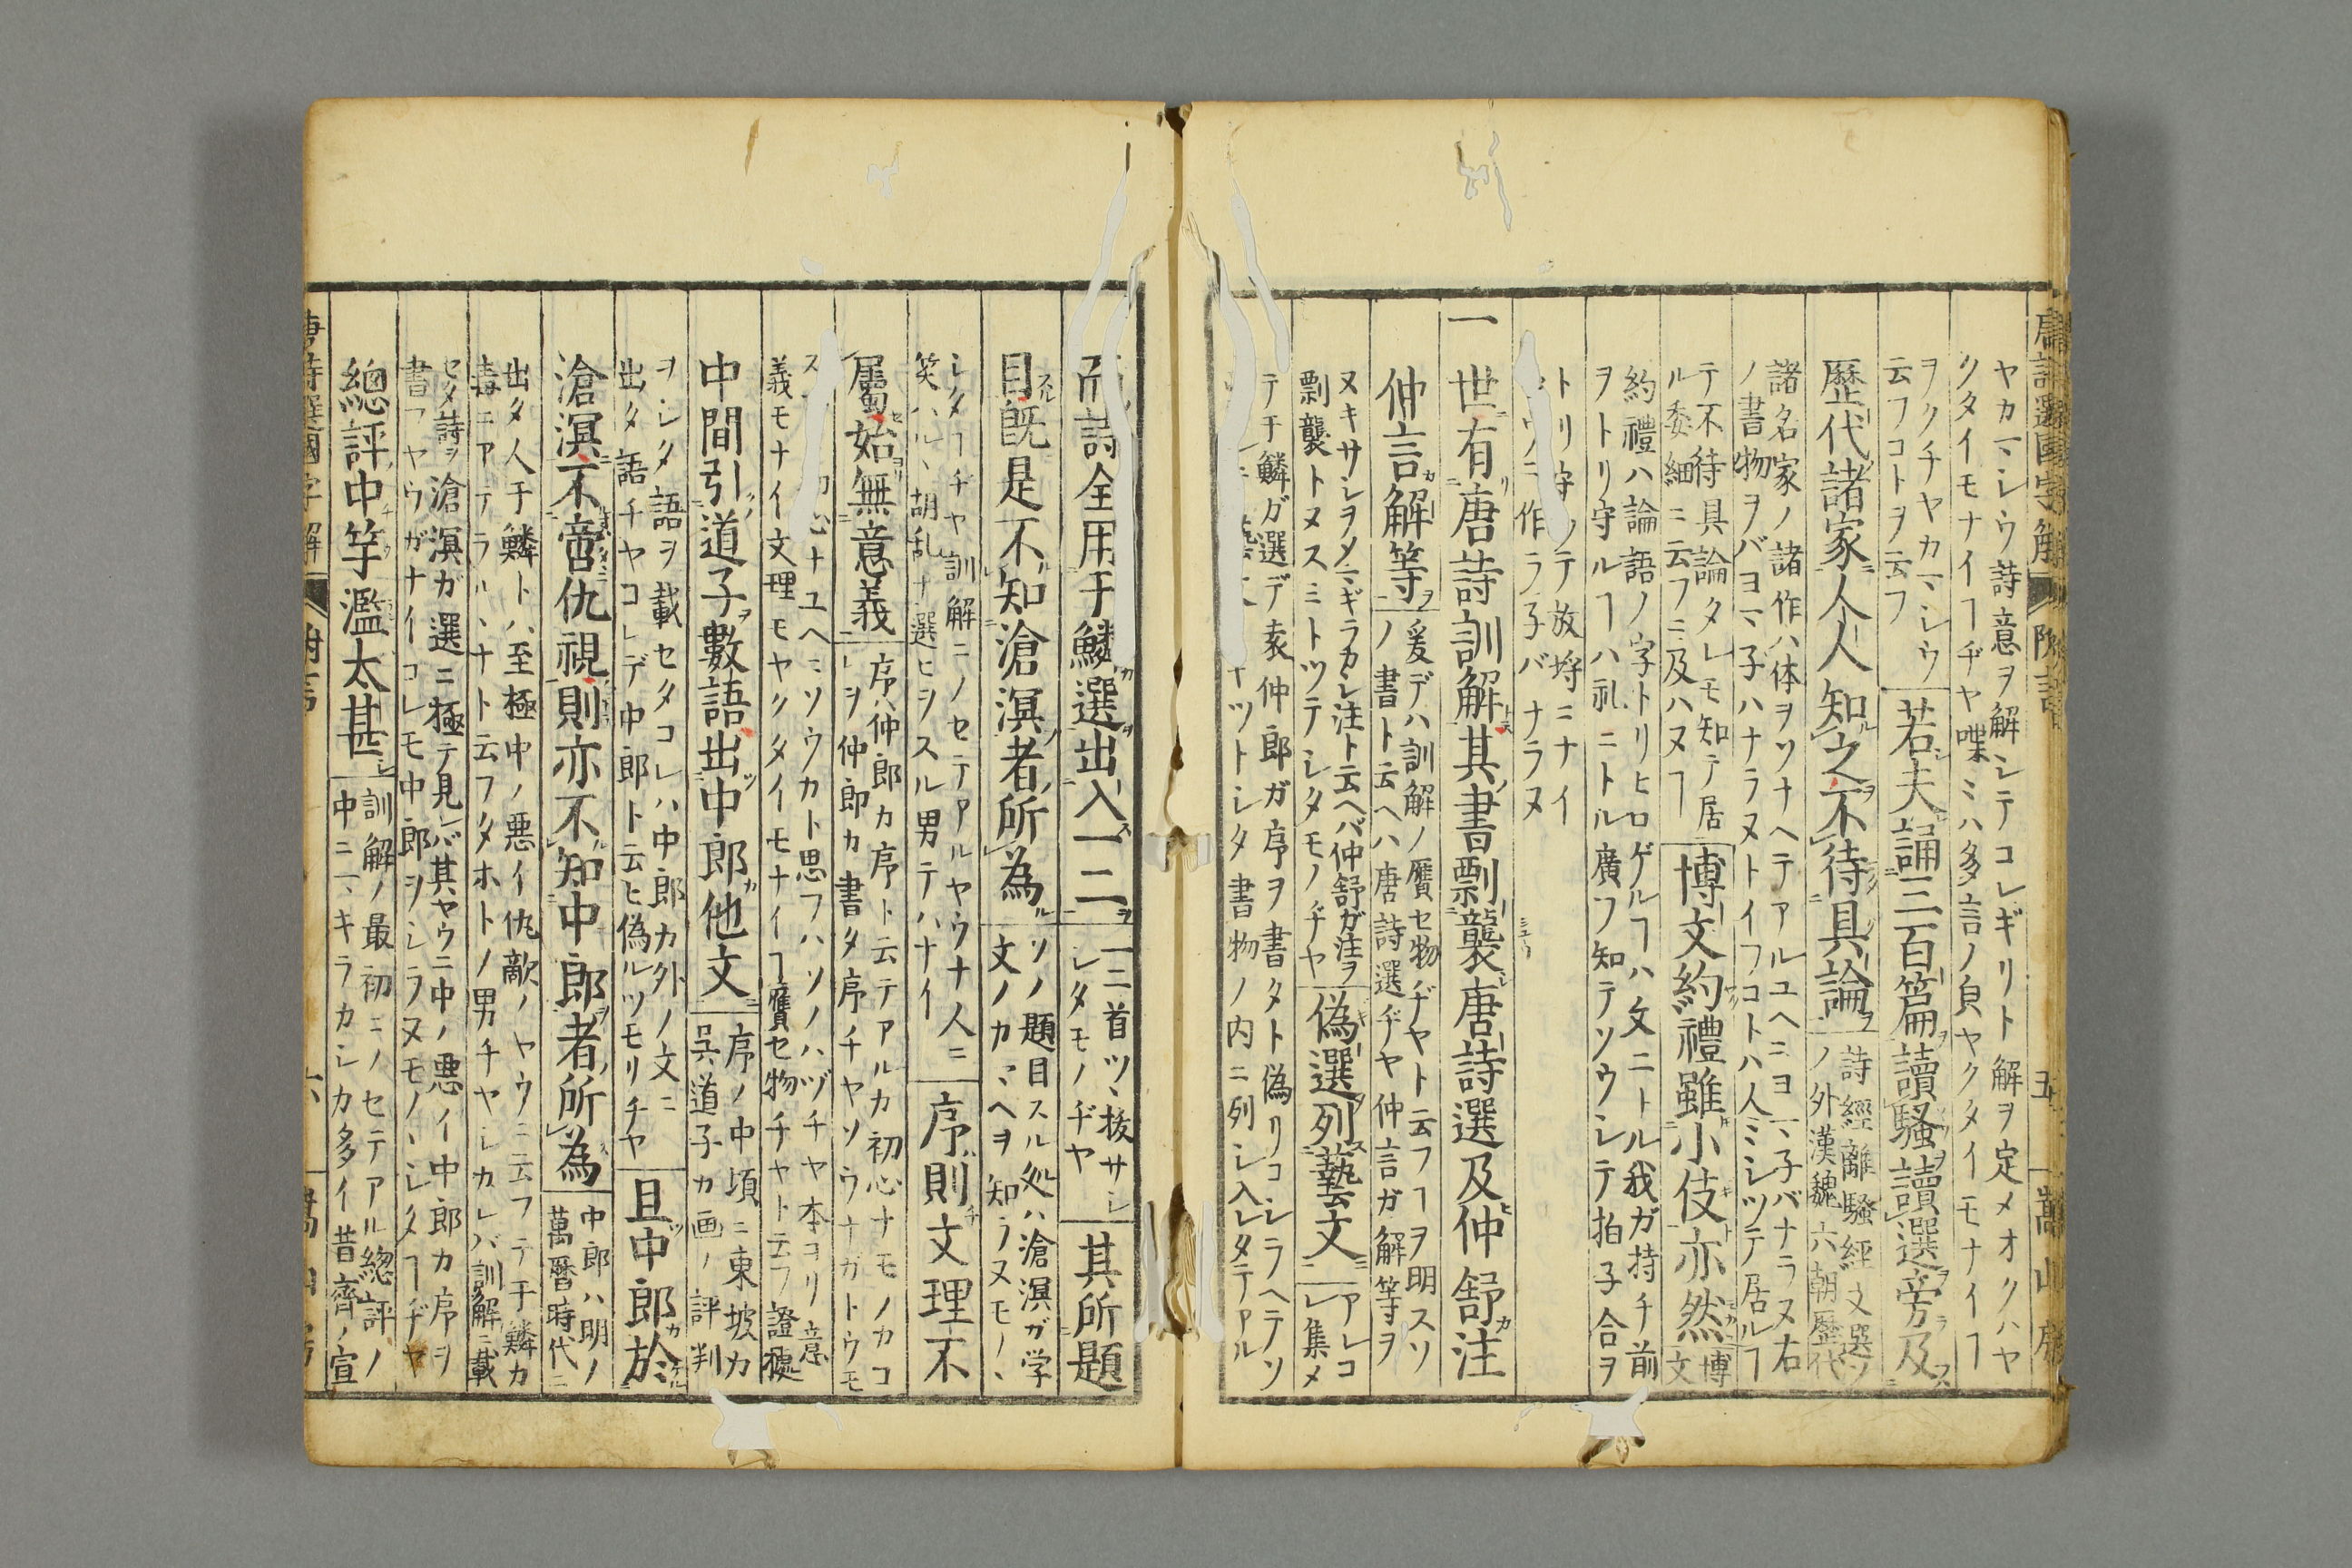 唐詩選國字解 附言 五 嵩山房
ヤカマシウ詩意ヲ解シテコレギリト解ヲ定メオクハヤ
クタイモナイヿヂヤ喋ミハ多言ノ負ヤクタイモナイヿ
ヲクチヤカマシウ
云フコトヲ云フ
若夫誦三百篇讀騷讀選旁及
歷代諸家人人知之不待具論
詩經離騷經文選ソ
ノ外漢魏六朝歷代
諸名家ノ諸作ハ体ヲソナヘテアルユヘニヨマ子バナラヌ右
ノ書物ヲバヨマ子ハナラヌトイフコトハ人ミシツテ居ルヿ
テ不待具論タレモ知テ居
ル委細ニ云フニ及ハヌヿ
博文約禮雖小伎亦然
博
文
約禮ハ論語ノ字トリヒロゲルヿハ文ニトル我ガ持チ前
ヲトリ守ルヿハ礼ニトル廣フ知テソウシテ拍子合ヲ
トリ守ノテ放埒ニナイ
ウニ作ラ子バナラヌ
一世有唐詩訓解其書剽襲唐詩選及仲舒注
仲言解等
爰デハ訓解ノ贋セ物ヂヤト云フヿヲ明スソ
ノ書ト云ヘハ唐詩選ヂヤ仲言ガ解等ヲ
ヌキサシヲメマギラカシ注ト云ヘバ仲舒ガ注ヲ
剽襲トヌスミトツテシタモノヂヤ
偽選列藝文
アレコ
レ集メ
テ于鱗ガ選デ袁仲郎ガ序ヲ書タト偽リコシラヘテソ
ナツトシタ書物ノ内ニ列シ入レタテアル
而詩全用于鱗選出入一二
一二首ツヽ抜サシ
レタモノヂヤ
其所題
目既是不知滄溟者所為
ソノ題目スル処ハ滄溟ガ学
文ノカヽヘヲ知ラヌモノヽ
シタヿチヤ訓解ニノセテアルヤウナ人ニ
笑ハルヽ胡乱ナ選ヒヲスル男テハナイ
序則文理不
屬始無意義
序ハ仲郎カ序ト云テアルカ初心ナモノカコ
レヲ仲郎カ書タ序チヤソウナガトウモ
心ナユヘニソウカト思フハソノハヅチヤ本ヨリ意
義モナイ文理モヤクタイモナイヿ贋セ物チヤト云フ證拠
中間引道子數語出中郎他文
序ノ中頃ニ東坡カ
呉道子カ画ノ評判
ヲシタ語ヲ載セタコレハ中郎カ外ノ文ニ
出タ語チヤコレデ中郎ト云ヒ偽ルツモリチヤ
且中郎於
滄溟不啻仇視則亦不知中郎者所為
中郎ハ明ノ
萬曆時代ニ
出タ人于鱗トハ至極中ノ悪イ仇敵ノヤウニ云フテ于鱗カ
毒ニアテラルヽナト云フタホトノ男チヤシカレバ訓解ニ載
セタ詩ヲ滄溟ガ選ニ極テ見レバ其ヤウニ中ノ悪イ中郎カ序ヲ
書フヤウガナイコレモ中郎ヲシラヌモノヽシタヿヂヤ
總評中竽濫太甚
訓解ノ最初ニノセテアル總評ノ
中ニマキラカシカ多イ昔齊ノ宣
唐詩選國字解 附言 六 嵩山房